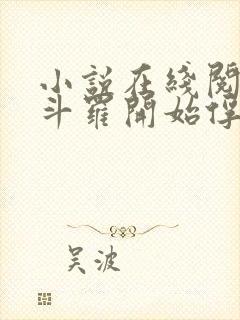 小說在綫閱
斗羅開始俘
吴波